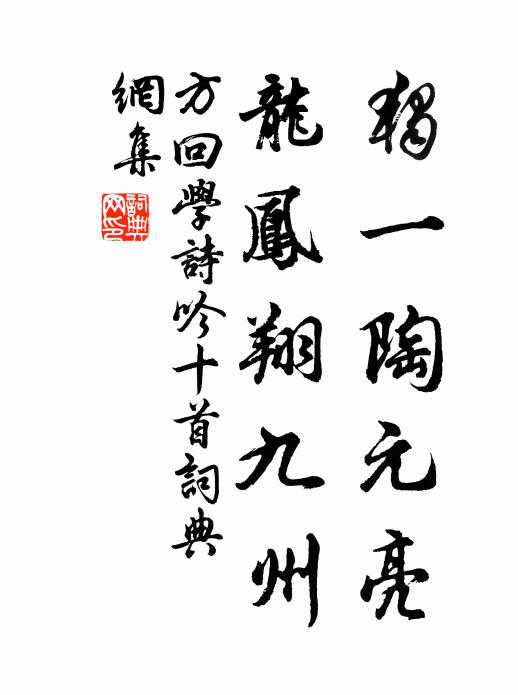 獨一陶元亮
龍鳳翔九州
方回學詩吟十首詞典
網集
詞典
网印